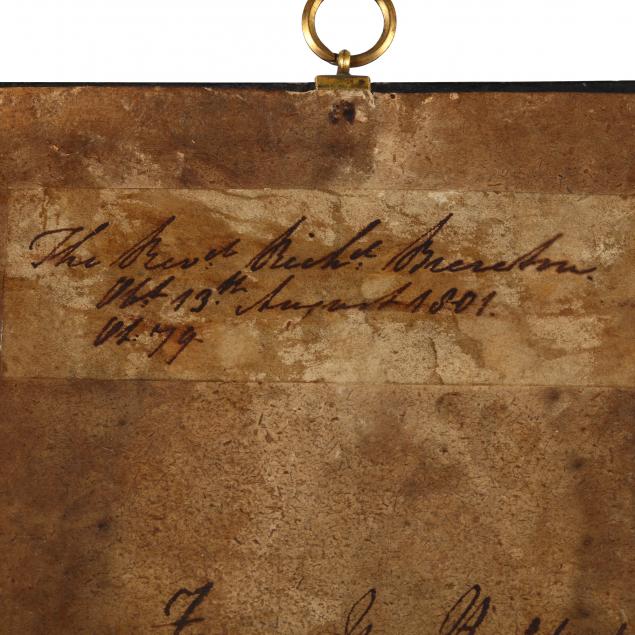 The Revd Richd Brereton.
Obt 13th August 1801.
Æt. 79
7